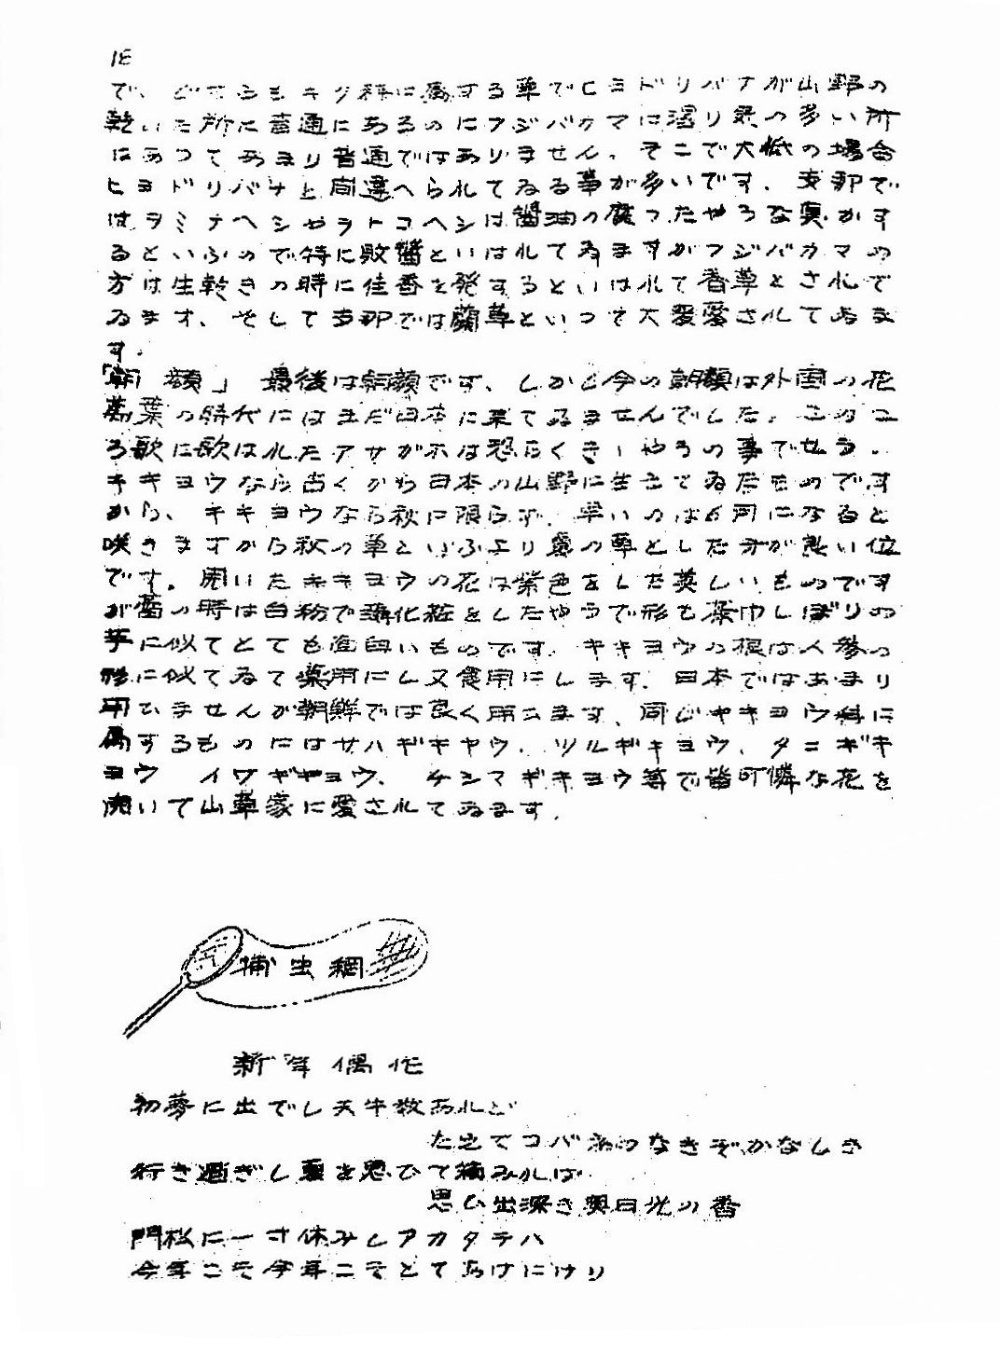 18
で、どちらもキク科に属する草でヒヨドリバナが山野の
乾いた所に普通にあるのにフジバカマは湿り気の多い所
にあつてあまり普通ではありません。そこで大低の場合
ヒヨドリバナと間違へられてゐる事が多いです。支那で
はヲミナヘシやヲトコヘシは醤油の腐つたやうな臭がす
るといふので特に敗醤といはれてゐますがフジバカマの
方は生乾きの時に佳香を発するといはれて香草とされて
ゐます、そして支那では蘭草といつて大変愛されてゐま
す。
「朝顔」 最後は朝顔です、しかし今の朝顔は外国の花
萬葉の時代にはまだ日本に来てゐませんでした。このこ
ろ歌に歌はれたアサガホは恐らくききやうの事でせう。
キキヨウなら古くから日本の山野に生きてゐたものです
から、キキヨウなら秋に限らず、早いのは6月になると
咲きますから秋の草といふより夏の草とした方が良い位
です。開いたキキヨウの花は紫色をした美しいものです
が蕾の時は白粉で薄化粧をしたやうで形も茶巾しぼりの
芋に似てとても面白いものです。キキヨウの根は人参の
形に似てゐて薬用にし又食用にします。日本ではあまり
用ひませんが朝鮮では良く用ゐます、同じキキヨウ科に
属するものにはサハギキヤウ、ツルギキヨウ、タニギキ
ヨウ イワギキョウ、チシマギキヨウ等で皆可憐な花を
開いて山草家に愛されてゐます。
捕虫網
新年偶作
初夢に出でし天牛数あれど
たえてコバネのなきぞかなしき
行き過ぎし夏を思ひて積みれば
思ひ出深き奥日光の香
門松に一寸休みしアカタテハ
今年こそ今年こそとてあけにけり